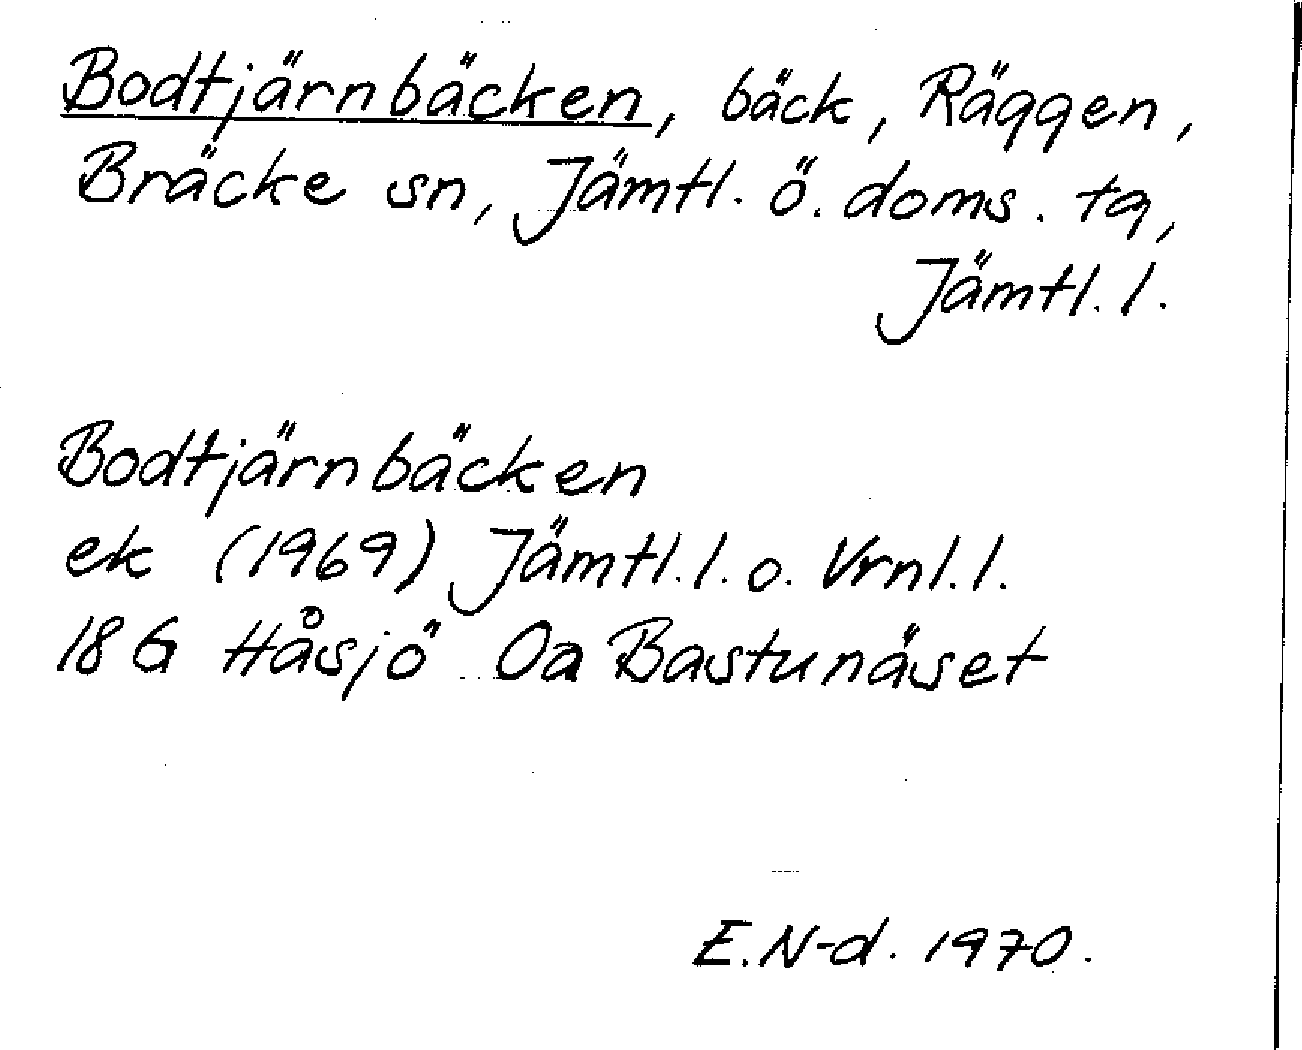 Bodtjärnbäcken, bäck, Räggen,
Bräcke sn, Jämtl. ö. doms. tg,
Jämtl. l.
Bodtjärnbäcken
ek (1969) Jämtl. l. o. Vrnl. l.
18 G Håsjö 0a Bastunäset
E. N-d. 1970.